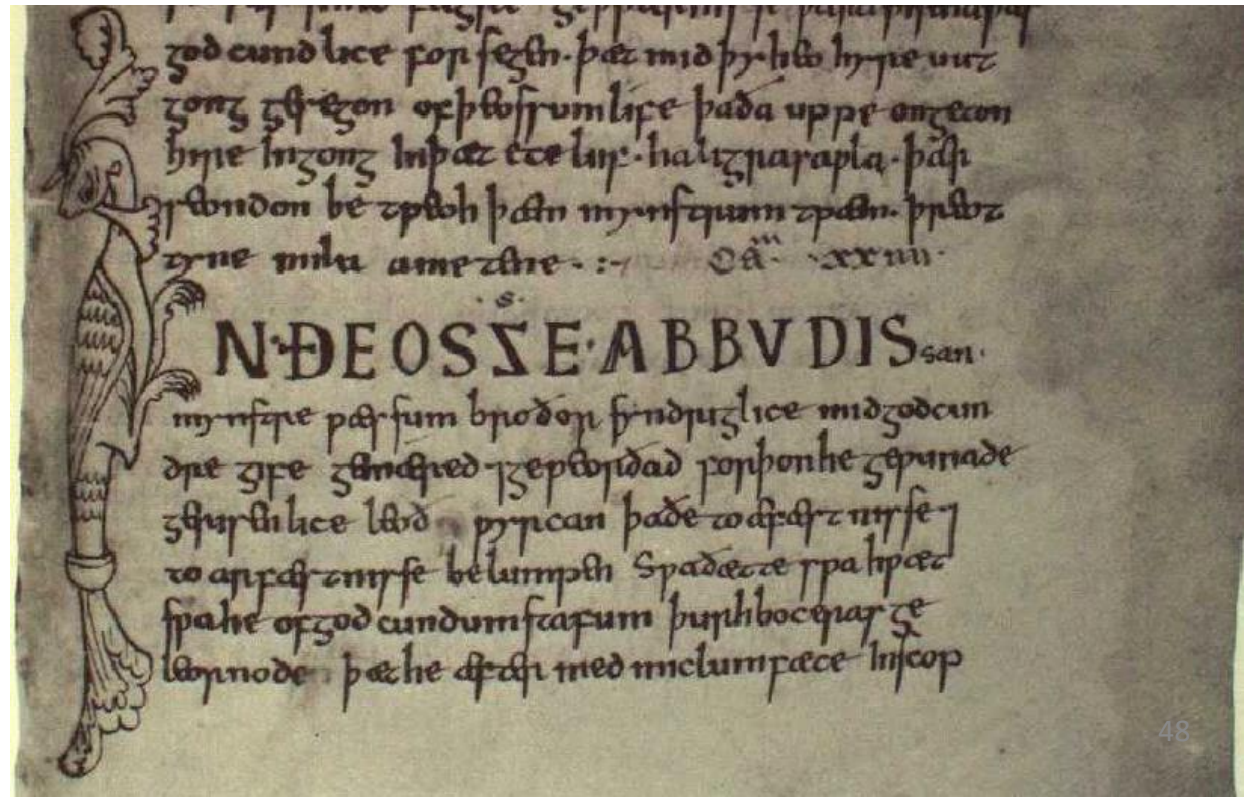 godcundlice forsegen. þæt mid þy heo hyre uut
gong gesegon of þeossum life þa ða uppe ongeton
hire ingong in þæt ece lif. haligra sapla. þær
seondon be tpeoh þæm mynstrum tpæm. þreot
tyne mila ametene. :- xxiiii.
.s.
N. ÐEOSSE. ABBVDIS san.
mynstre pæs sum broðor syndriglice mid godcun
dre gife gemæred ⁊ gepeorðad forþon he gepunade
gerisenlice leoð pyrcan þa ðe to æfæstnisse ⁊
to arfæstnisse belumpen Spa ðætte spa hpæt
spa he of godcundum stafum þurh boceras ge
leornode þæt he æfter medmiclum fæce in scop
48